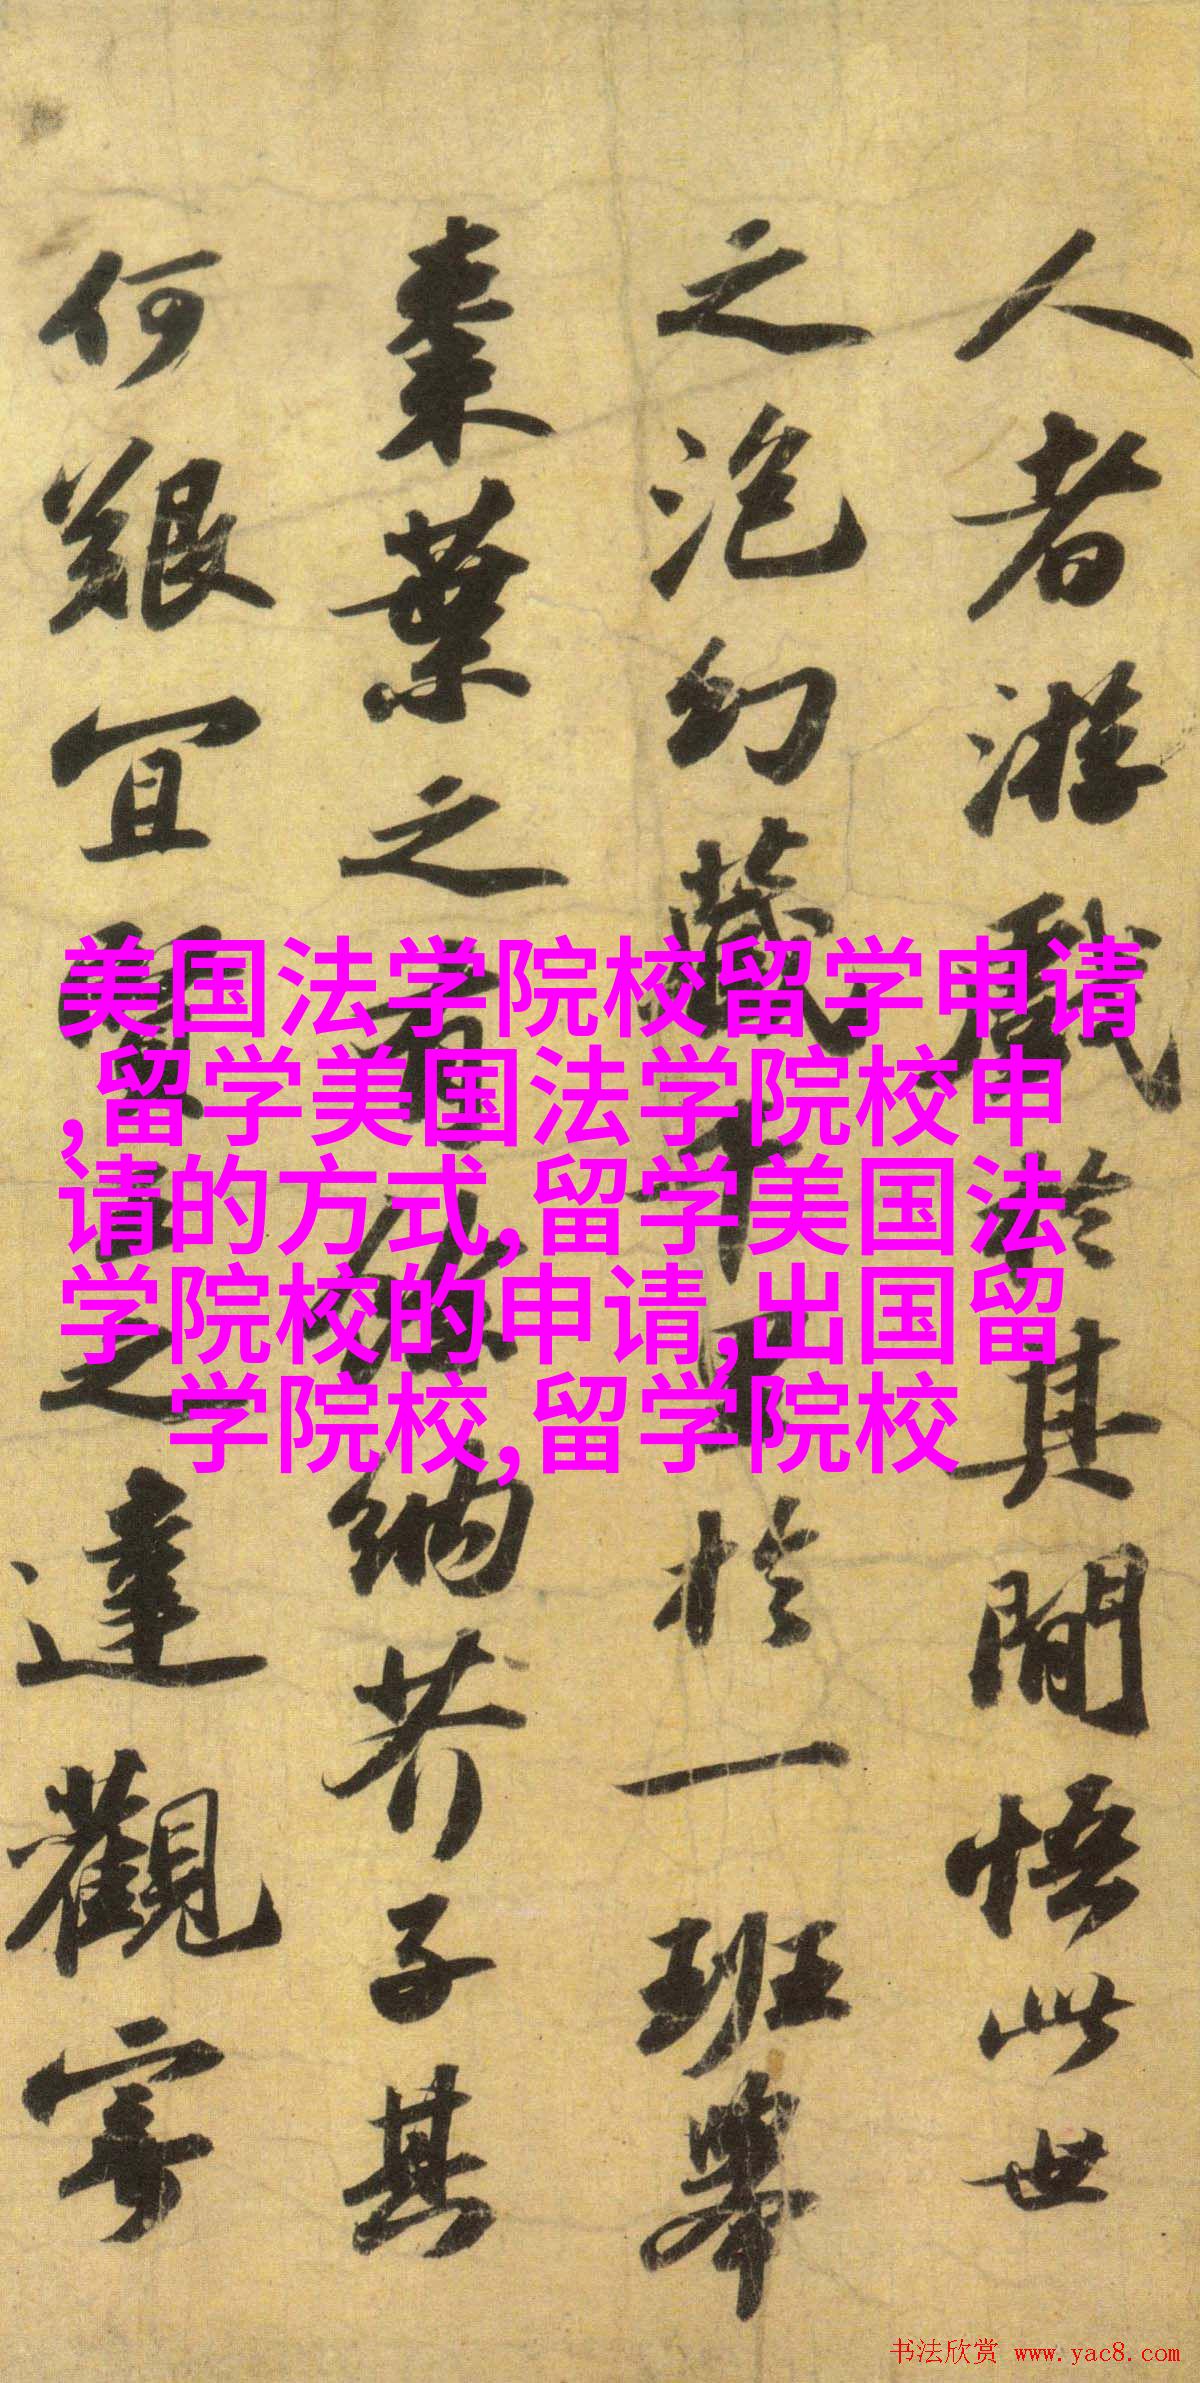 人者游戲於其間悟此世
之泡幻藏千里於一班舉
棗葉之有餘納芥子其
何艱宜賢王之達觀寄
美国法学院校留学申请
,留学美国法学院校申
请的方式,留学美国法
学院校的申请,出国留
学院校,留学院校
书法欣赏 www.yac8.com